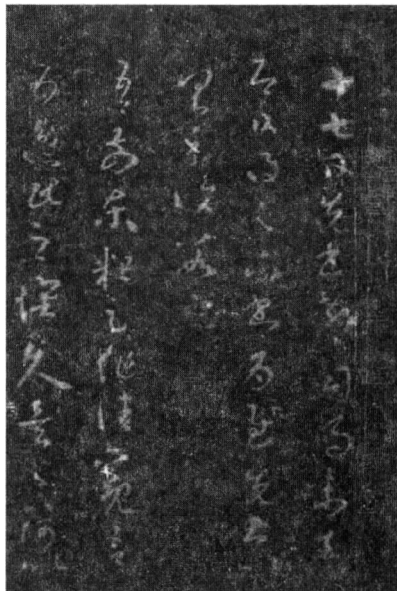 十七日先書郗司馬未去
即日得足下書為慰先書以
具示復數字
吾前東粗足作佳觀吾
為逸民之懷久矣足下何以